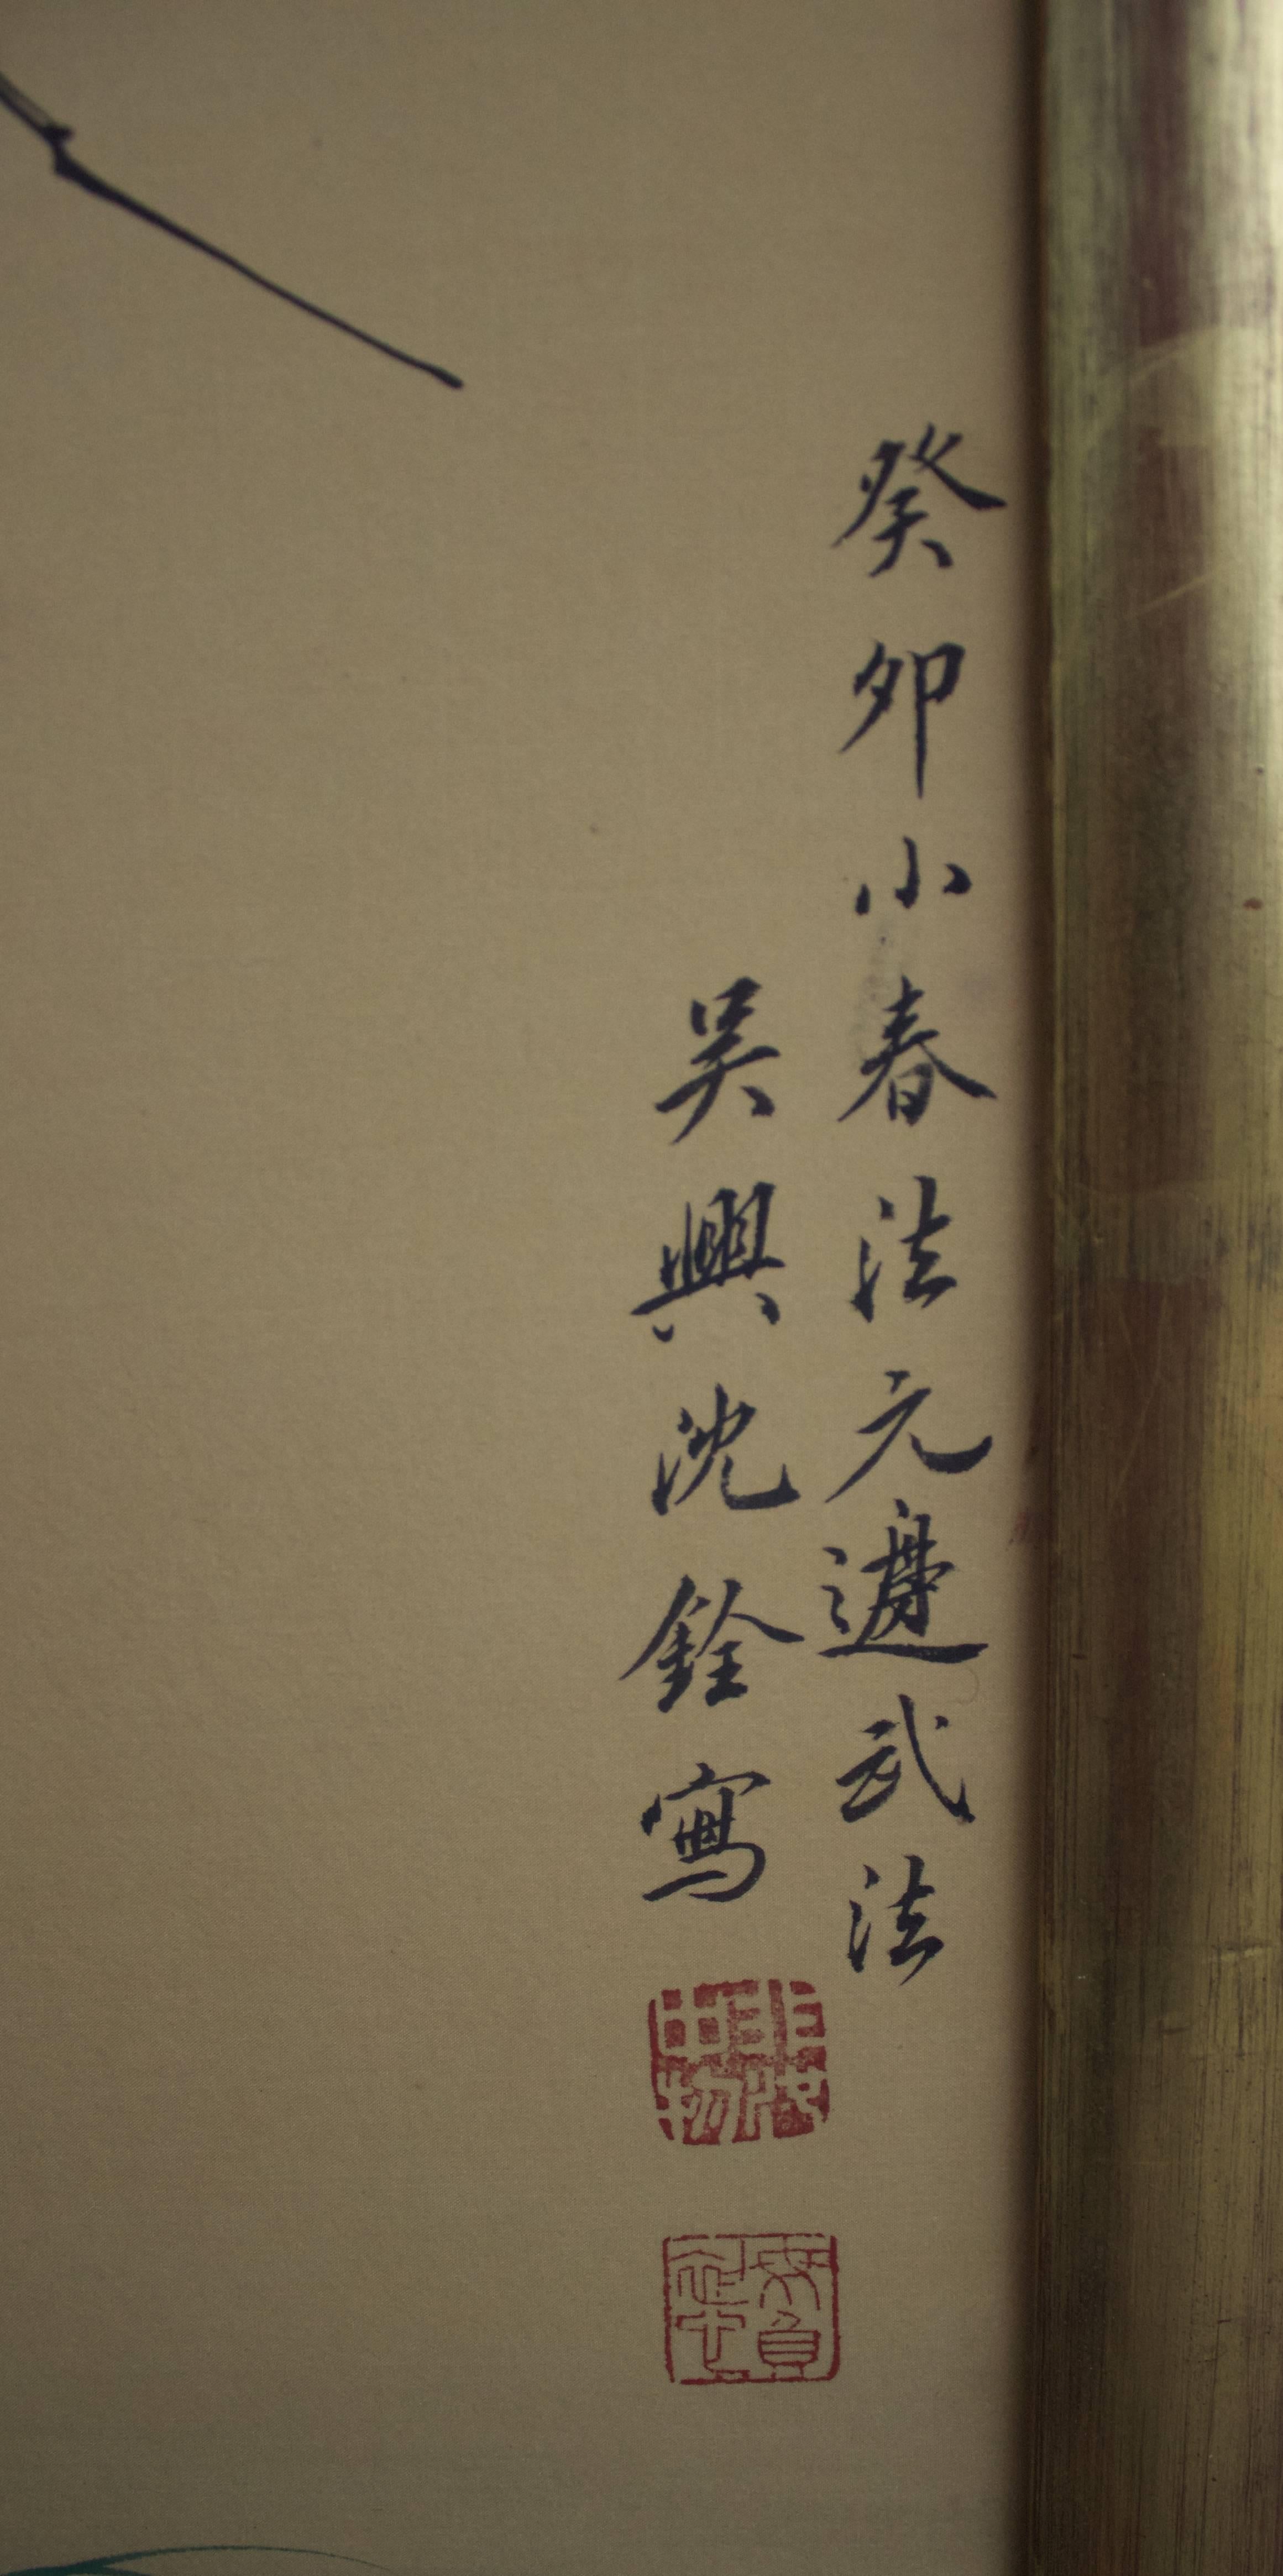 癸卯小春法元邊武法
吳興沈銓寫